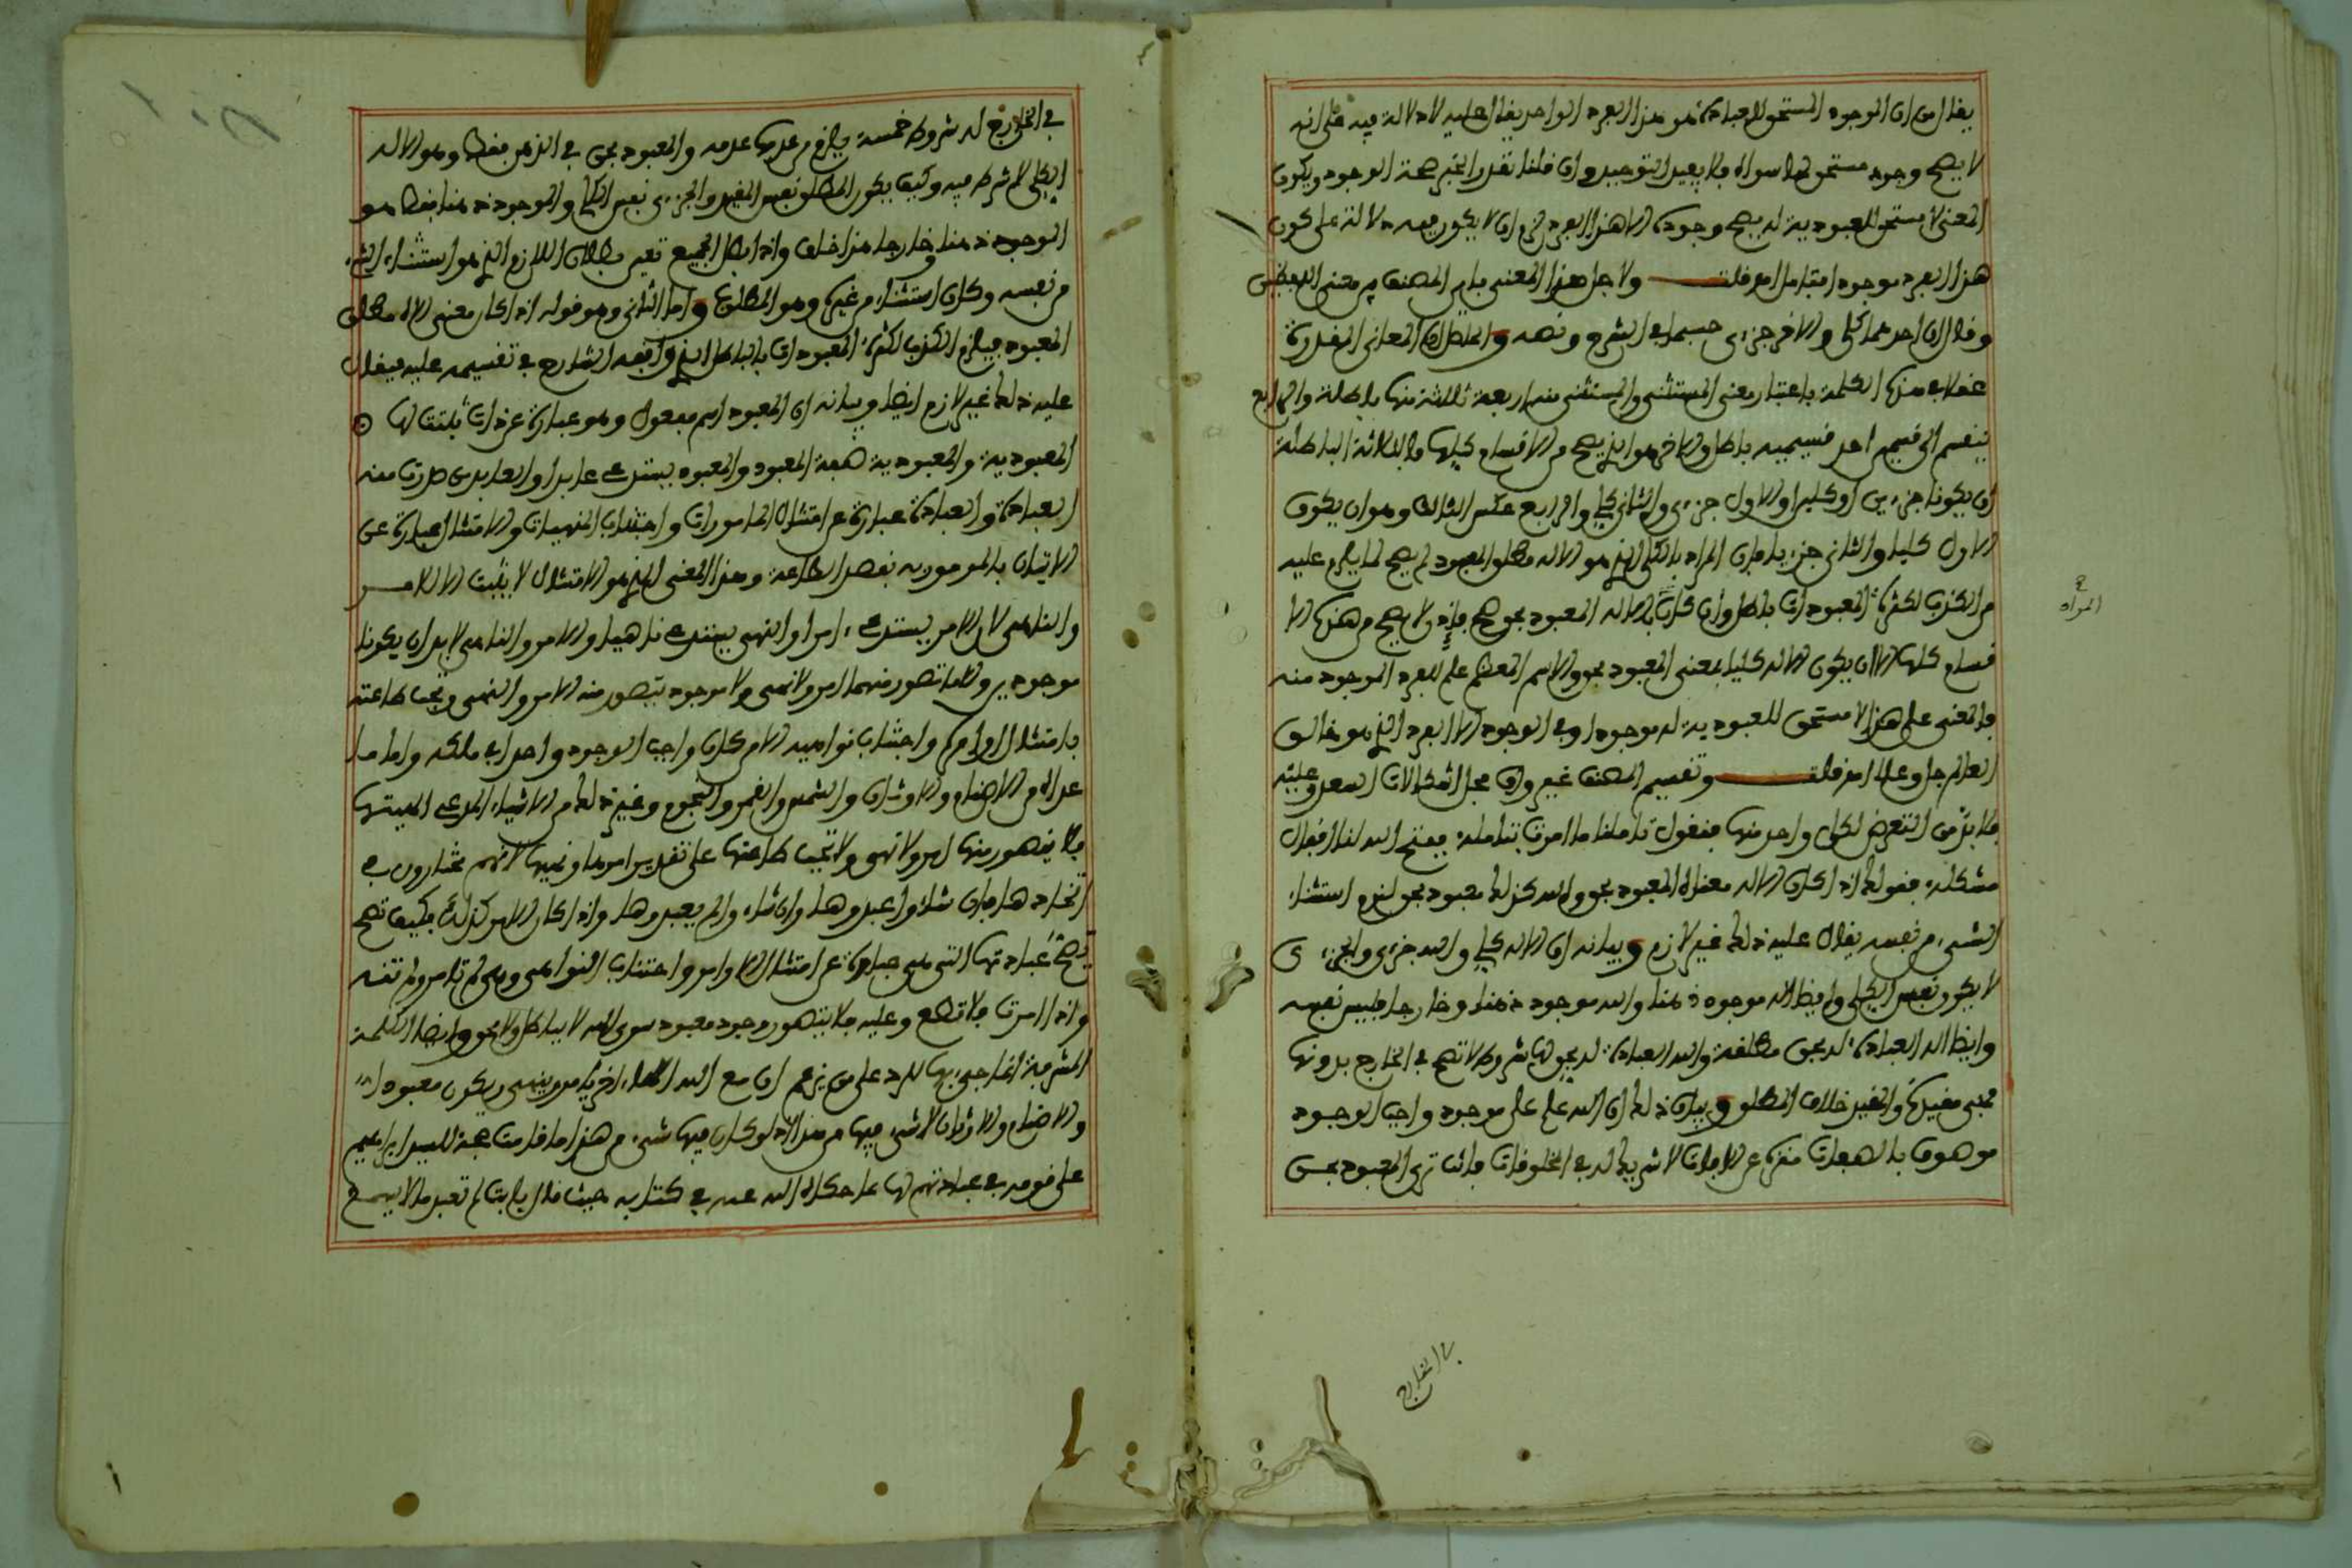 يقال من ان الموجود المستحق للعبادة هو هذا الفرد الواحد يقال عليه لا دلالة فيه على انه
لا يصح وجود مستحق لها سواه فلا يفيد التوحيد وان قلنا تقدير الخبر صحة الوجود ويكون
المعنى لا مستحق للعبودية له يصح وجوده الا هذا الفرد لزم ان لا يكون فيه دلالة على كون
هذا الفرد موجودا فتامل اه قلت ولاجل هذا المعنى باين المصنف بين معنى اللفظين
وقال ان احدهما كلي والاخر جزءي حسبما في الشرح ونصه والحاصل ان المعاني المقدرة
عقلا في هذه الكلمة باعتبار معنى المستثنى والمستثنى منه اربعة ثلاثة منها باطلة والرابع
ينقسم الى قسمين احد قسيميه باطل والاخر هو الذي يصح من الاقسام كلها فالثلاثة الباطلة
ان يكونا جزءين او كليين او الاول جزءي والثاني كلي والرابع عكس الثالث وهو ان يكون
الاول كليا والثاني جزءيا فان المراد بالكلي الذي هو الاله مطلق المعبود لم يصح لما يلزم عليه
من الكذب لكثرة المعبودات بالباطل وان كان الاله المعبود بحق صح فاذا لا يصح من هذه الا
قسام كلها الا ان يكون الاله كليا بمعنى المعبود بحق والاسم المعظم علم للفرد الموجود منه
فالمعنى على هذا لا مستحق للعبودية له موجود او في الوجود الا الفرد الذي هو خالق
العالم جل وعلا اه قلت وتقسيم المصنف غير واف بحل اشكالات السعد وعليه
فلا بد من التعرض لكل واحد منها فنقول تاملنا ما امرت بتامله ففتح الله لنا اقفال
مشكله فقوله اذا كان الاله معناه المعبود بحق والله كذلك معبود بحق لزم استثناء
الشيء من نفسه يقال عليه ذلك غير لازم وبيانه ان الاله كلي والله جزءي والجزءي
لا يكون نفس الكلي وايضا الاله موجود ذهنا والله موجود ذهنا وخارجا فليس نفسه
وايضا اله العبادة له بحق مطلقة والله العبادة له بحق لها شروط لا تصح في الخارج بدونها
فهي مقيدة والمقيد خلاف المطلق وبيان ذلك ان الله علم على موجود واجب الوجود
موصوف بالصفات منزه عن الافات لا شريك له في المخلوقات فانت ترى المعبود بحق
المراد
في الخارج
في الخارج له شروط خمسة يلزم من عدمها عدمه والمعبود بحق في الذهن فقط وهو الاله
الكلي لا شرط فيه وكيف يكون المطلق نفس المقيد والجزءي نفس الكلي والموجود ذهنا فقط هو
الموجود ذهنا وخارجا هذا خلف واذا بطل الجميع تعين بطلان اللازم الذي هو استثناء الشيء
من نفسه وكان استثناء من غيره وهو المطلوب واما الثاني وهو قوله اذا كان معنى الاله مطلق
المعبود فيلزم الكذب لكثرة المعبودات بالباطل الذي وافقه الشارح في تقسيمه عليه فيقال
عليه ذلك غير لازم ايضا وبيانه ان المعبود اسم مفعول وهو عبارة عن ذات ثبتت لها
المعبودية والمعبودية صفة المعبود والمعبود يستدعي عابدا والعابد من صدرت منه
العبادة والعبادة عبارة عن امتثال المامورات واجتناب المنهيات والامتثال عبارة عن
الاتيان بالمامور به بقصد الطاعة وهذا المعنى الذي هو الامتثال لا يثبت الا للامر
والناهي لان الامر يستدعي امرا والنهي يستدعي ناهيا والامر والناهي لا بد ان يكونا
موجودين والا ما تصور منهما امر ولا نهي ولا موجود يتصور منه الامر والنهي وتجب طاعته
بامتثال اوامره واجتناب نواهيه الا من كان واجب الوجود واحدا في ملكه واما ما
عداه من الاصنام والاوثان والشمس والقمر والنجوم وغير ذلك من الاشياء المدعى الهيتها
فلا يتصور منها امر ولا نهي ولا تجب طاعتها على تقدير امرها ونهيها لانهم مختارون في
اتخاذها فان شاءوا عبدوها وان شاءوا لم يعبدوها واذا كان الامر كذلك فكيف تصح
عبادتها التي هي عبارة عن امتثال الاوامر واجتناب النواهي وهي لم تامر ولم تنه
واذا امرت فلا تطاع وعليه فلا يتصور وجود معبود سوى الله لا بباطل ولا بحق وايضا الكلمة
المشرفة انما جيء بها للرد على من زعم ان مع الله الها اخر يامر وينهى ويكون معبودا
والاصنام والاوثان لا شيء فيها من هذا اذ لو كان فيها شيء من هذا ما قامت حجة للسيد ابراهيم
على قومه في عبادتهم لها على ما حكاه الله عنه في كتابه حيث قال يا ابت لم تعبد ما لا يسمع